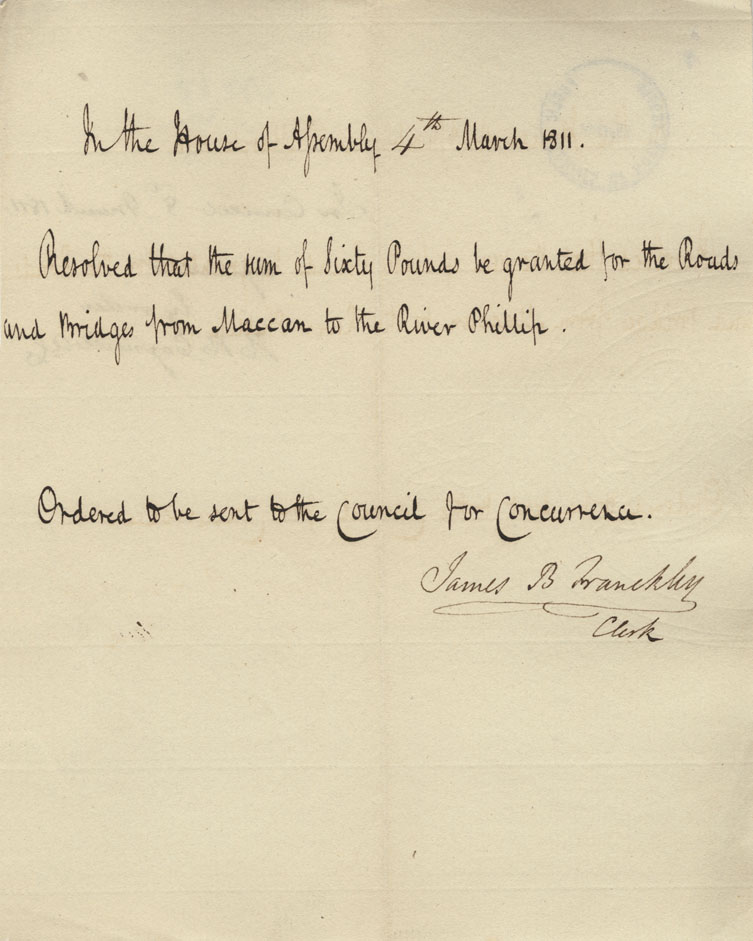 In the House of Assembly 4th March 1811.
Resolved that the sum of Sixty Pounds be granted for the Roads
and Bridges from Maccan to the River Phillip.
Ordered to be sent to the Council for Concurrence.
James B Franckly
Clerk